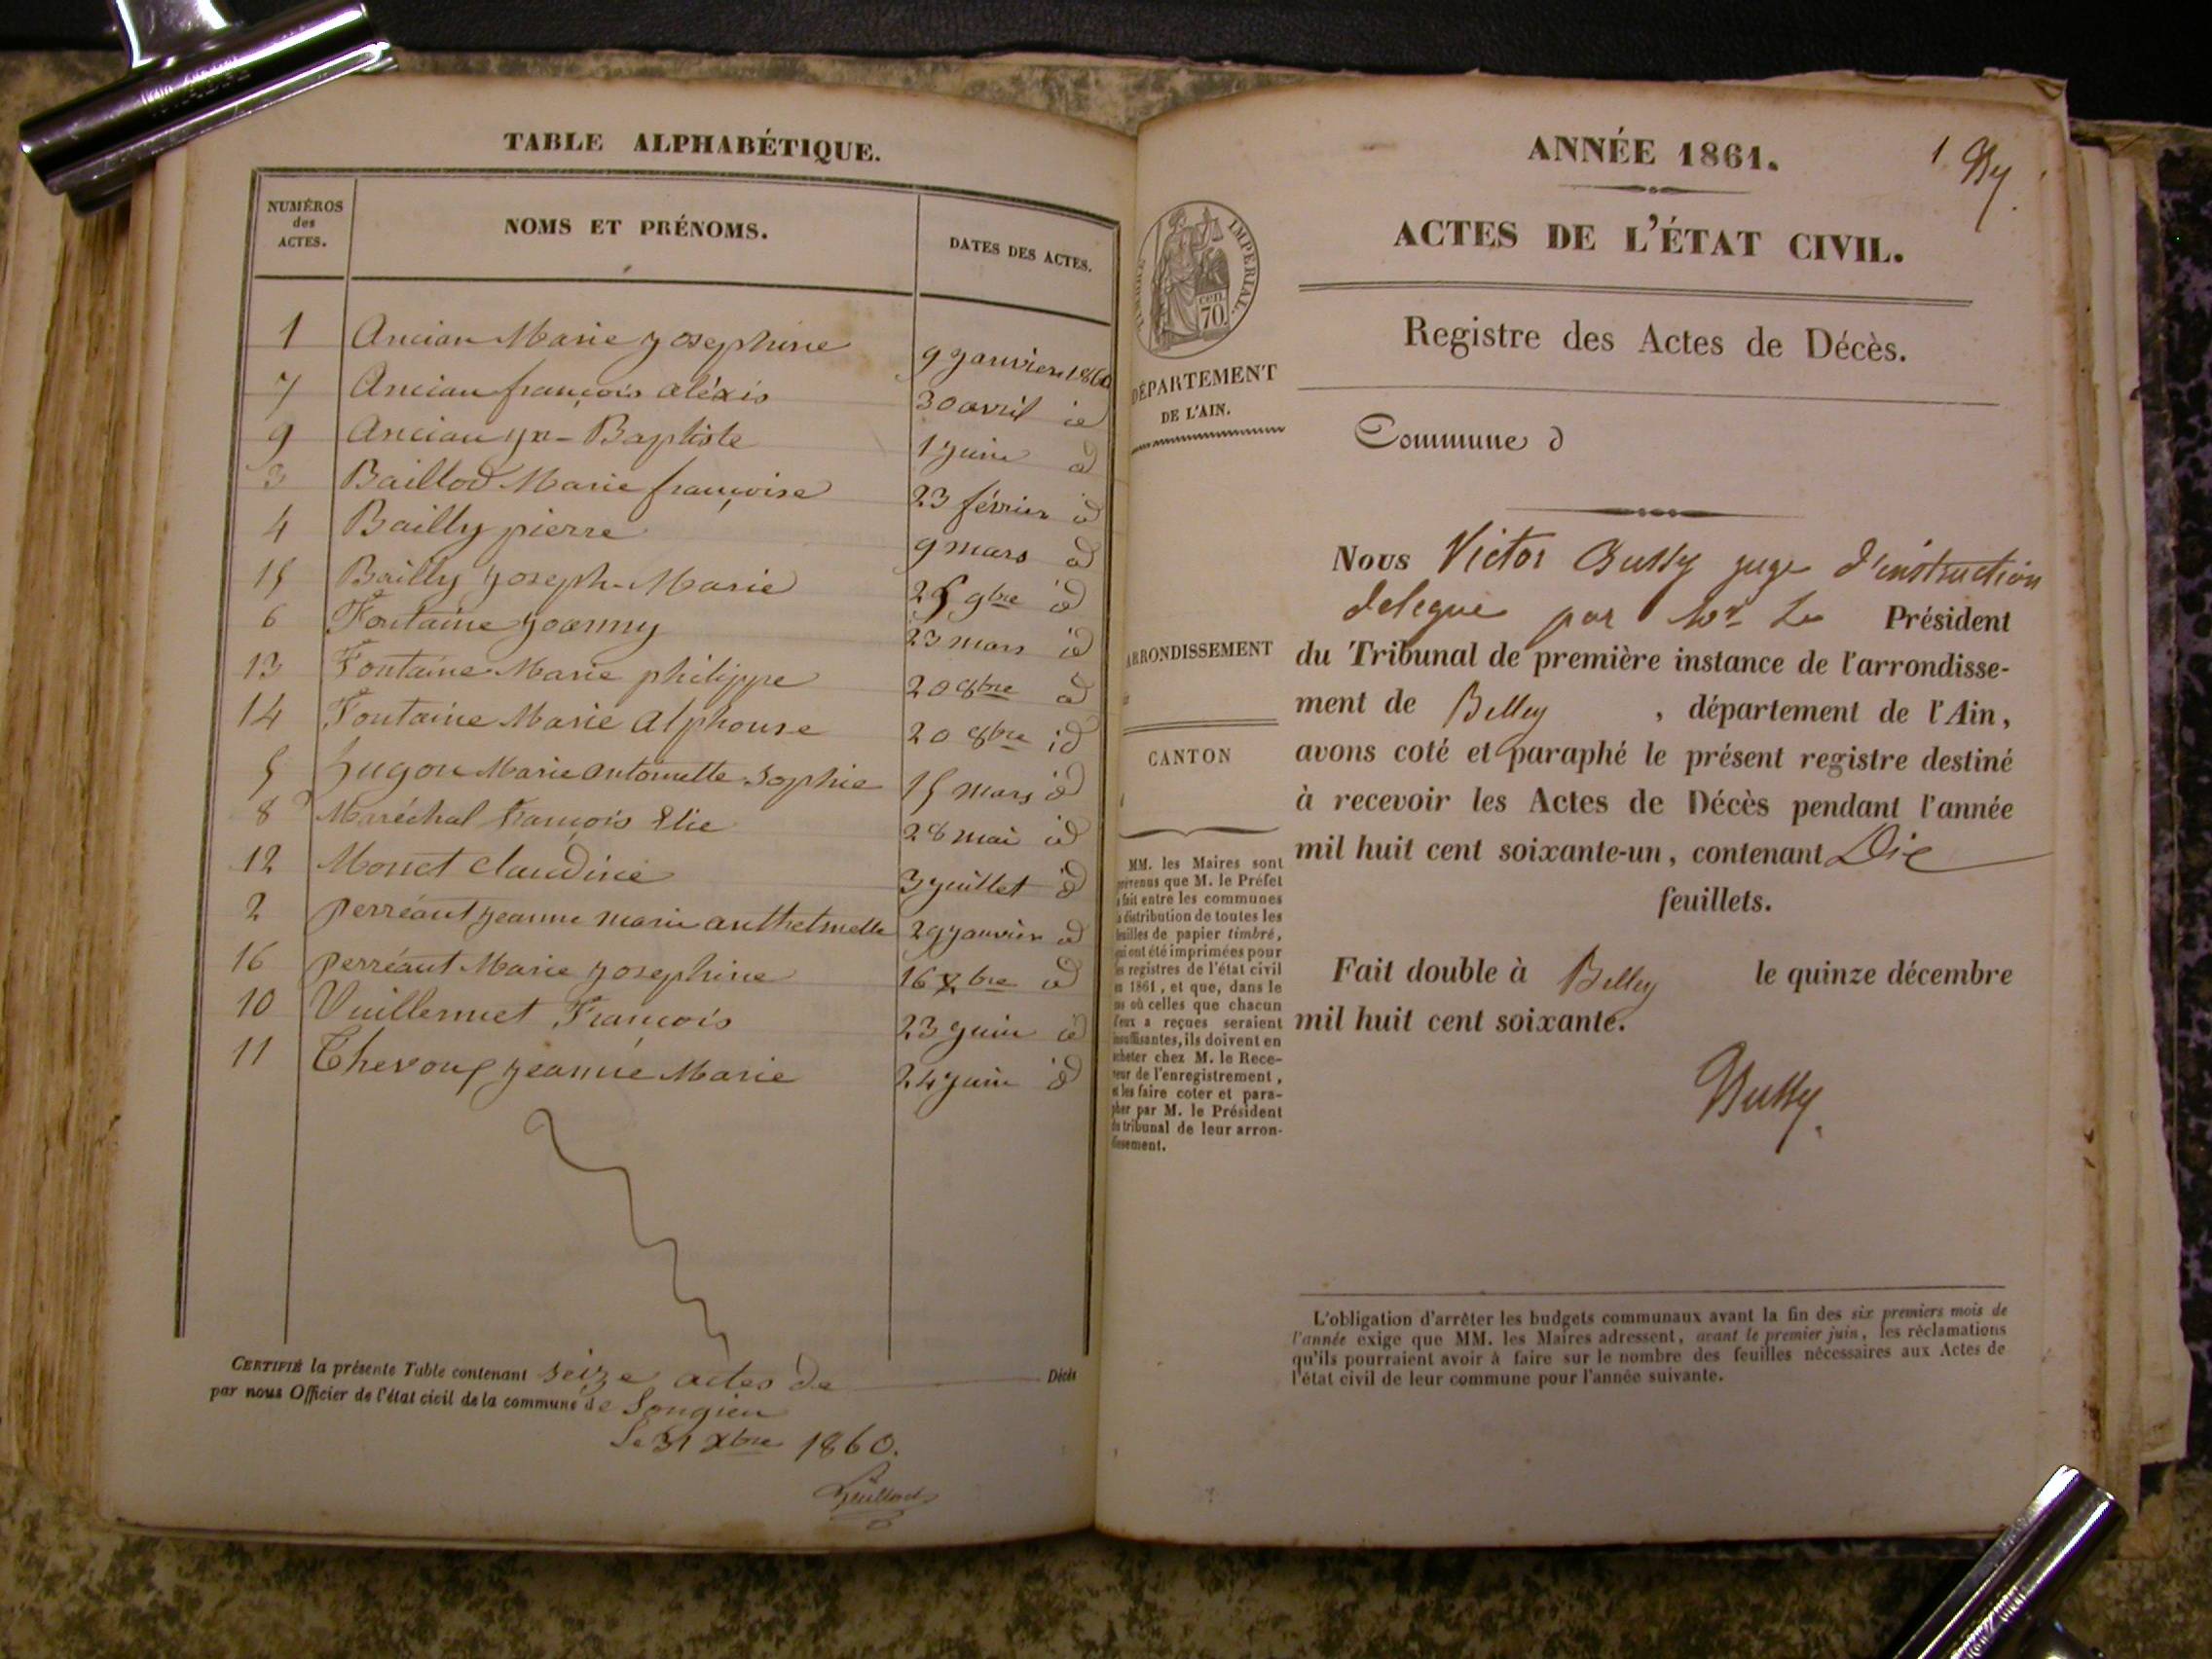 TABLE ALPHABÉTIQUE.
NUMÉROS
des
ACTES.
NOMS ET PRÉNOMS.
DATES DES ACTES.
1 Ancian Marie Josephine 9 janvier 1860
7 Ancian françois aléxis 30 avril id
9 Ancian Jn-Baptiste 1 juin id
3 Baillod Marie françoise 23 février id
4 Bailly pierre 9 mars id
15 Bailly Joseph-Marie 25 9bre id
6 Fontaine Joanny 23 mars id
13 Fontaine Marie philippe 20 8bre id
14 Fontaine Marie Alphonse 20 8bre id
5 hugon Marie antoinette Sophie 15 mars id
8 Maréchal François Elie 28 mai id
12 Monet Claudine 3 juillet id
2 perréaut jeanne marie anthelmette 29 janvier id
16 perréaut Marie Josephine 16 Xbre id
10 Vuillermet François 23 juin id
11 jeanne Marie 24 juin id
CERTIFIÉ la présente Table contenant seize actes de Décès
par nous Officier de l'état civil de la commune de Songieu
Le 31 Xbre 1860.
1 By.
ANNÉE 1861.
ACTES DE L'ÉTAT CIVIL.
Registre des Actes de Décès.
TIMBRE IMPÉRIAL
cen.
70
DÉPARTEMENT
DE L'AIN.
Commune d
ARRONDISSEMENT
CANTON
MM. les Maires sont
prévenus que M. le Préfet
a fait entre les communes
la distribution de toutes les
feuilles de papier timbré,
qui ont été imprimées pour
les registres de l'état civil
en 1861, et que, dans le
cas où celles que chacun
d'eux a reçues seraient
insuffisantes, ils doivent en
acheter chez M. le Rece-
veur de l'enregistrement,
et les faire coter et para-
pher par M. le Président
du tribunal de leur arron-
dissement.
Nous Victor Bussy juge d'instruction
delegue par Mr Le Président
du Tribunal de première instance de l'arrondisse-
ment de Belley, département de l'Ain,
avons coté et paraphé le présent registre destiné
à recevoir les Actes de Décès pendant l'année
mil huit cent soixante-un, contenant Dix
feuillets.
Fait double à Belley le quinze décembre
mil huit cent soixante.
Bussy.
L'obligation d'arrêter les budgets communaux avant la fin des six premiers mois de
l'année exige que MM. les Maires adressent, avant le premier juin, les réclamations
qu'ils pourraient avoir à faire sur le nombre des feuilles nécessaires aux Actes de
l'état civil de leur commune pour l'année suivante.